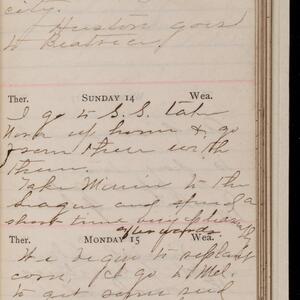 city.
Huston goes
to Beatrice.
Ther. SUNDAY 14 Wea.
I go to S.S. take
Nora up home & go
from there with
them.
Take Minnie to the
league and spend a
short time very pleasantly
afterwards
Ther. MONDAY 15 Wea.
We begin to replant
corn, I go to Mel.
to get some seed